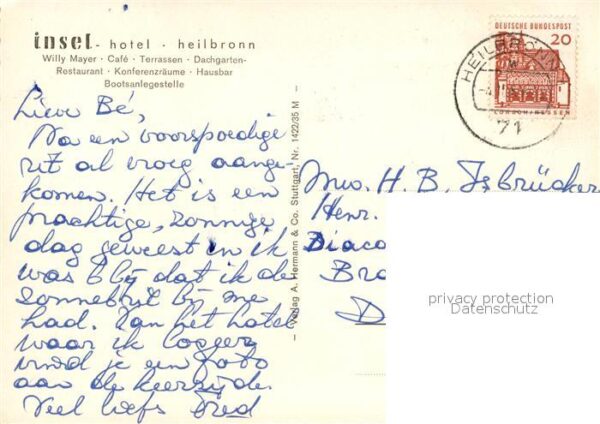 insel - hotel · heilbronn
Willy Mayer · Café · Terrassen · Dachgarten-
Restaurant · Konferenzräume · Hausbar
Bootsanlegestelle
Lieve Bé,
Na een voorspoedige
rit al vroeg aange-
komen. Het is een
prachtige, zonnige
dag geweest en ik
was blij dat ik de
zonnebril bij me
had. Van het hotel
waar ik logeer
vind je een foto
aan de keerzijde.
Veel liefs
– Verlag A. Hermann & Co. Stuttgart, Nr. 1422/35 M –
DEUTSCHE BUNDESPOST
20
LORSCH/HESSEN
HEILBRONN
71
Mw. H. B. IJsbrücker
Henr.
Diaco
Bra
D
privacy protection
Datenschutz